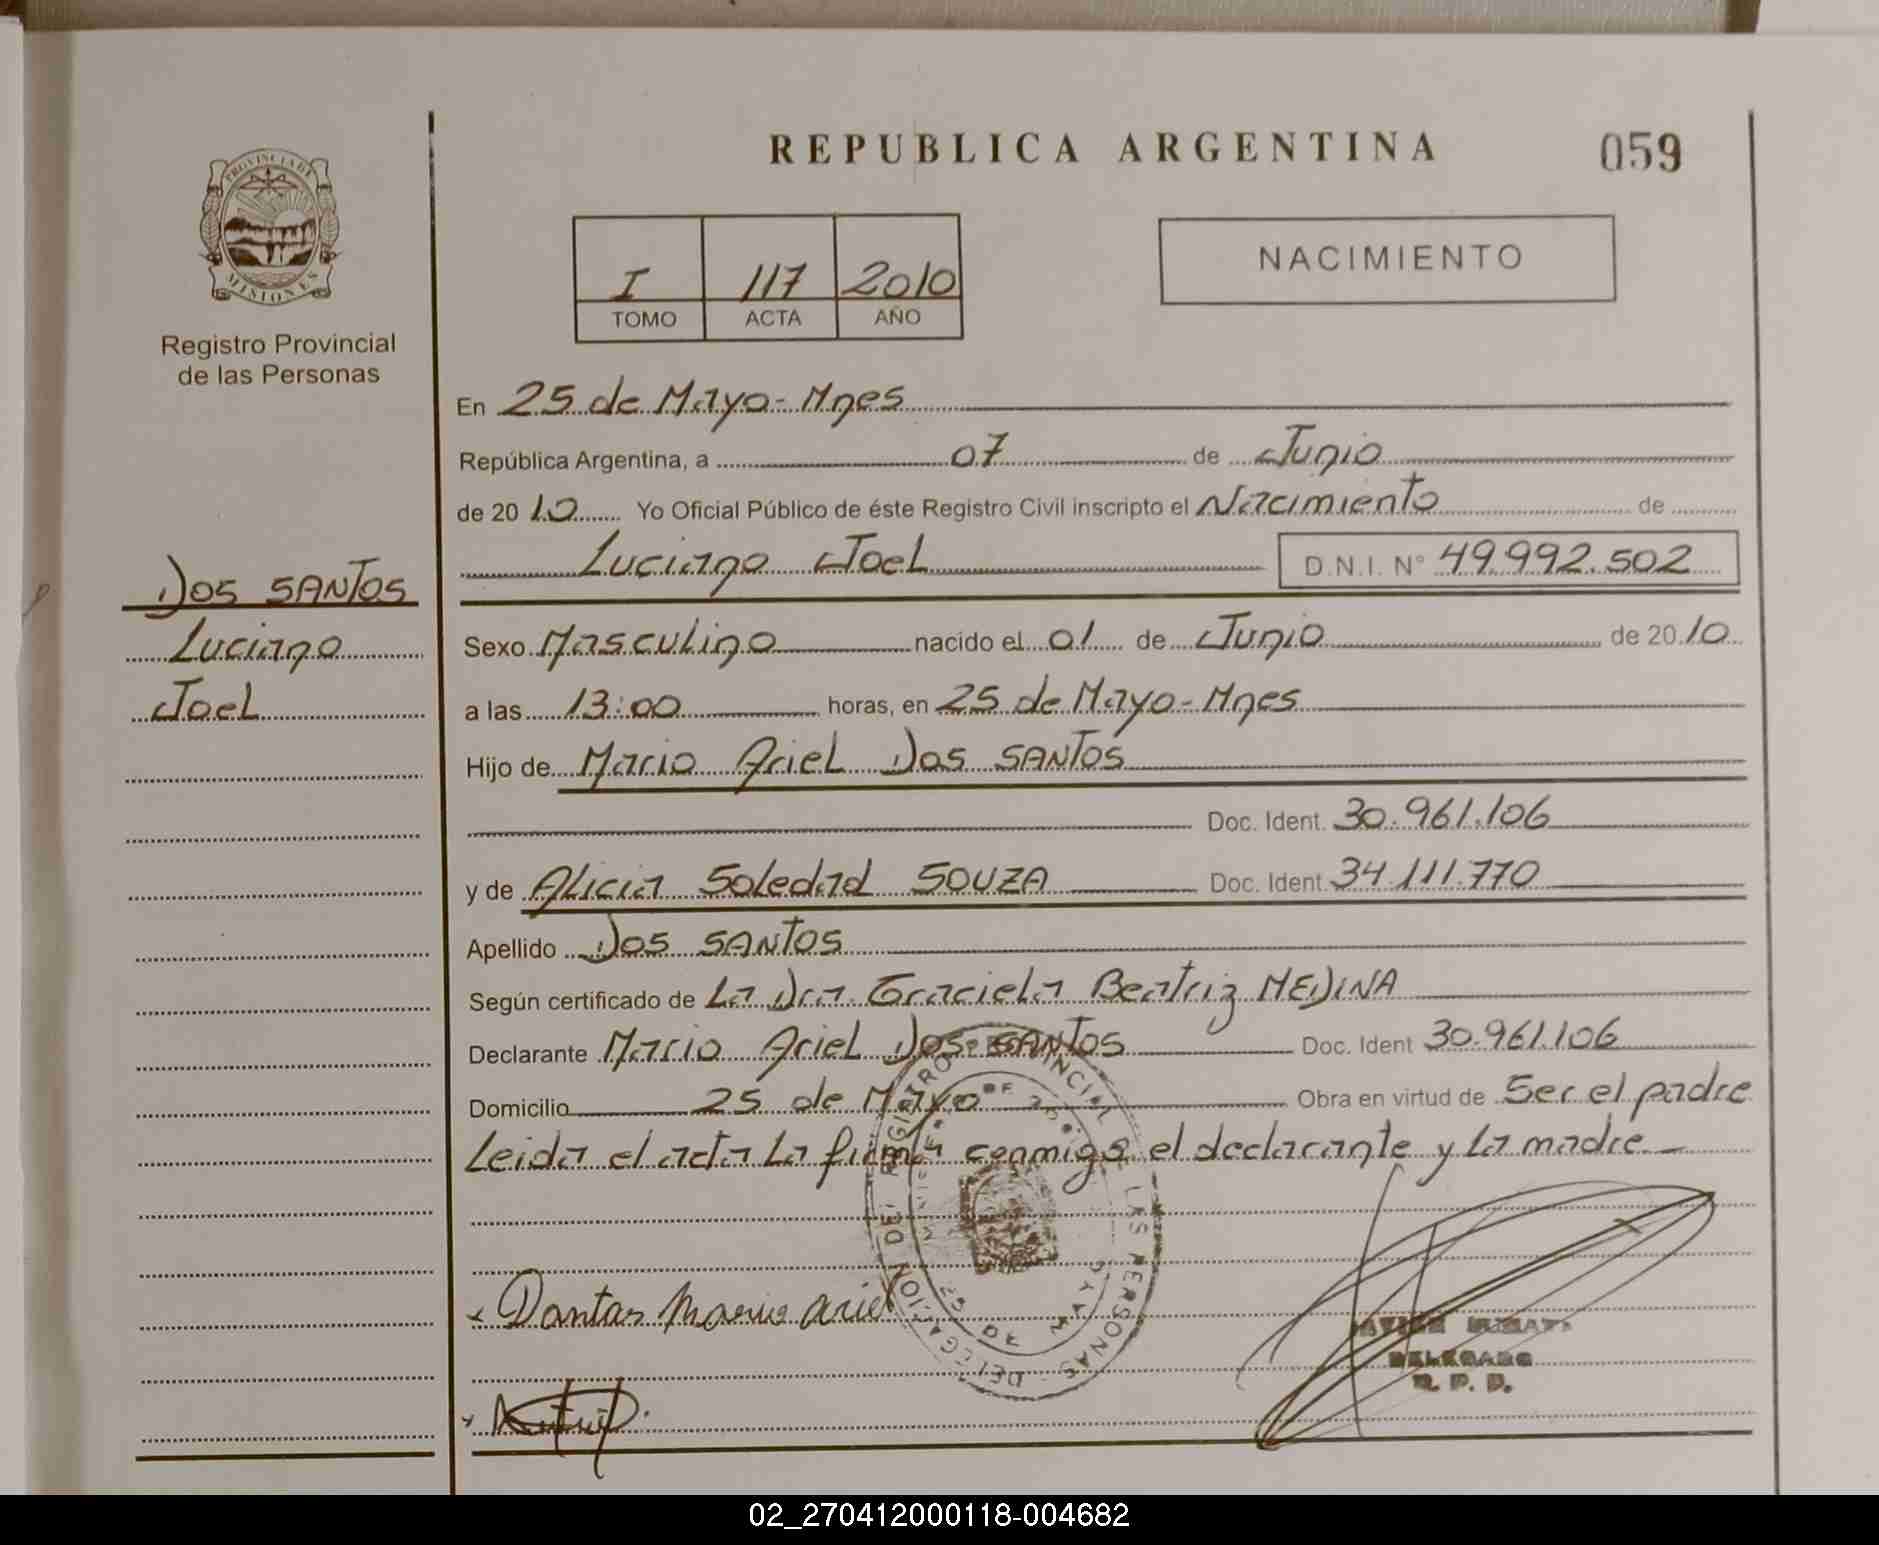 REPUBLICA ARGENTINA
059
PROVINCIA DE
MISIONES
Registro Provincial
de las Personas
I 117 2010
TOMO ACTA AÑO
NACIMIENTO
En 25 de Mayo - Mnes
República Argentina, a 07 de Junio
de 2010 Yo Oficial Público de éste Registro Civil inscripto el Nacimiento de
Luciano Joel D.N.I. Nº 49.992.502
DOS SANTOS
Luciano
Joel
Sexo Masculino nacido el 01 de Junio de 2010
a las 13:00 horas, en 25 de Mayo - Mnes
Hijo de Mario Ariel DOS SANTOS
Doc. Ident. 30.961.106
y de Alicia Soledad SOUZA Doc. Ident. 34.111.770
Apellido DOS SANTOS
Según certificado de La Dra. Graciela Beatriz MEDINA
Declarante Mario Ariel DOS SANTOS Doc. Ident 30.961.106
Domicilio 25 de Mayo Obra en virtud de Ser el padre
Leida el acta La firma conmigo el declarante y La madre
DELEGACION DEL REGISTRO PROVINCIAL DE LAS PERSONAS
25 DE MAYO
mario ariel
DELEGADO
R. P. P.
02_270412000118-004682